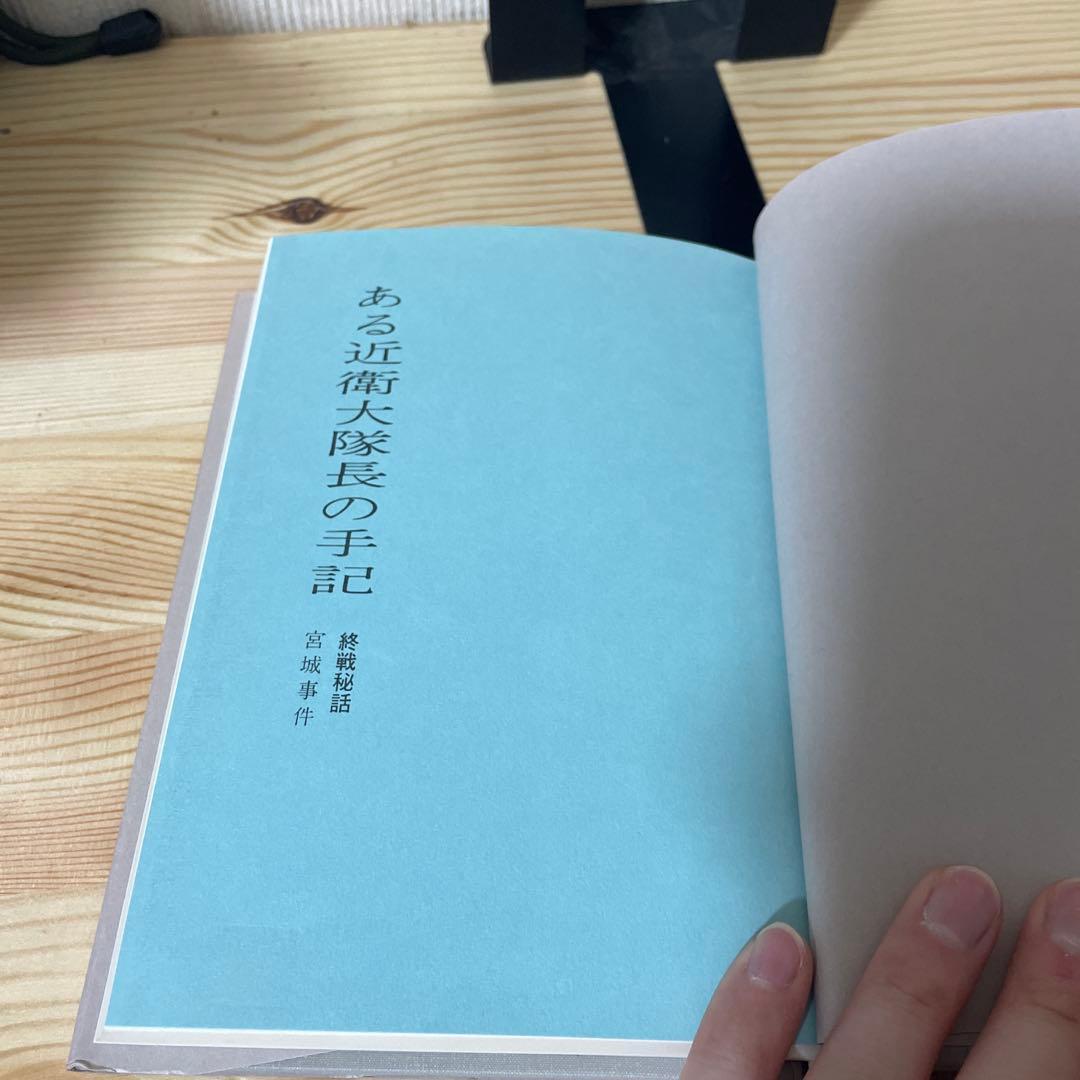 ある近衛大隊長の手記
終戦秘話
宮城事件